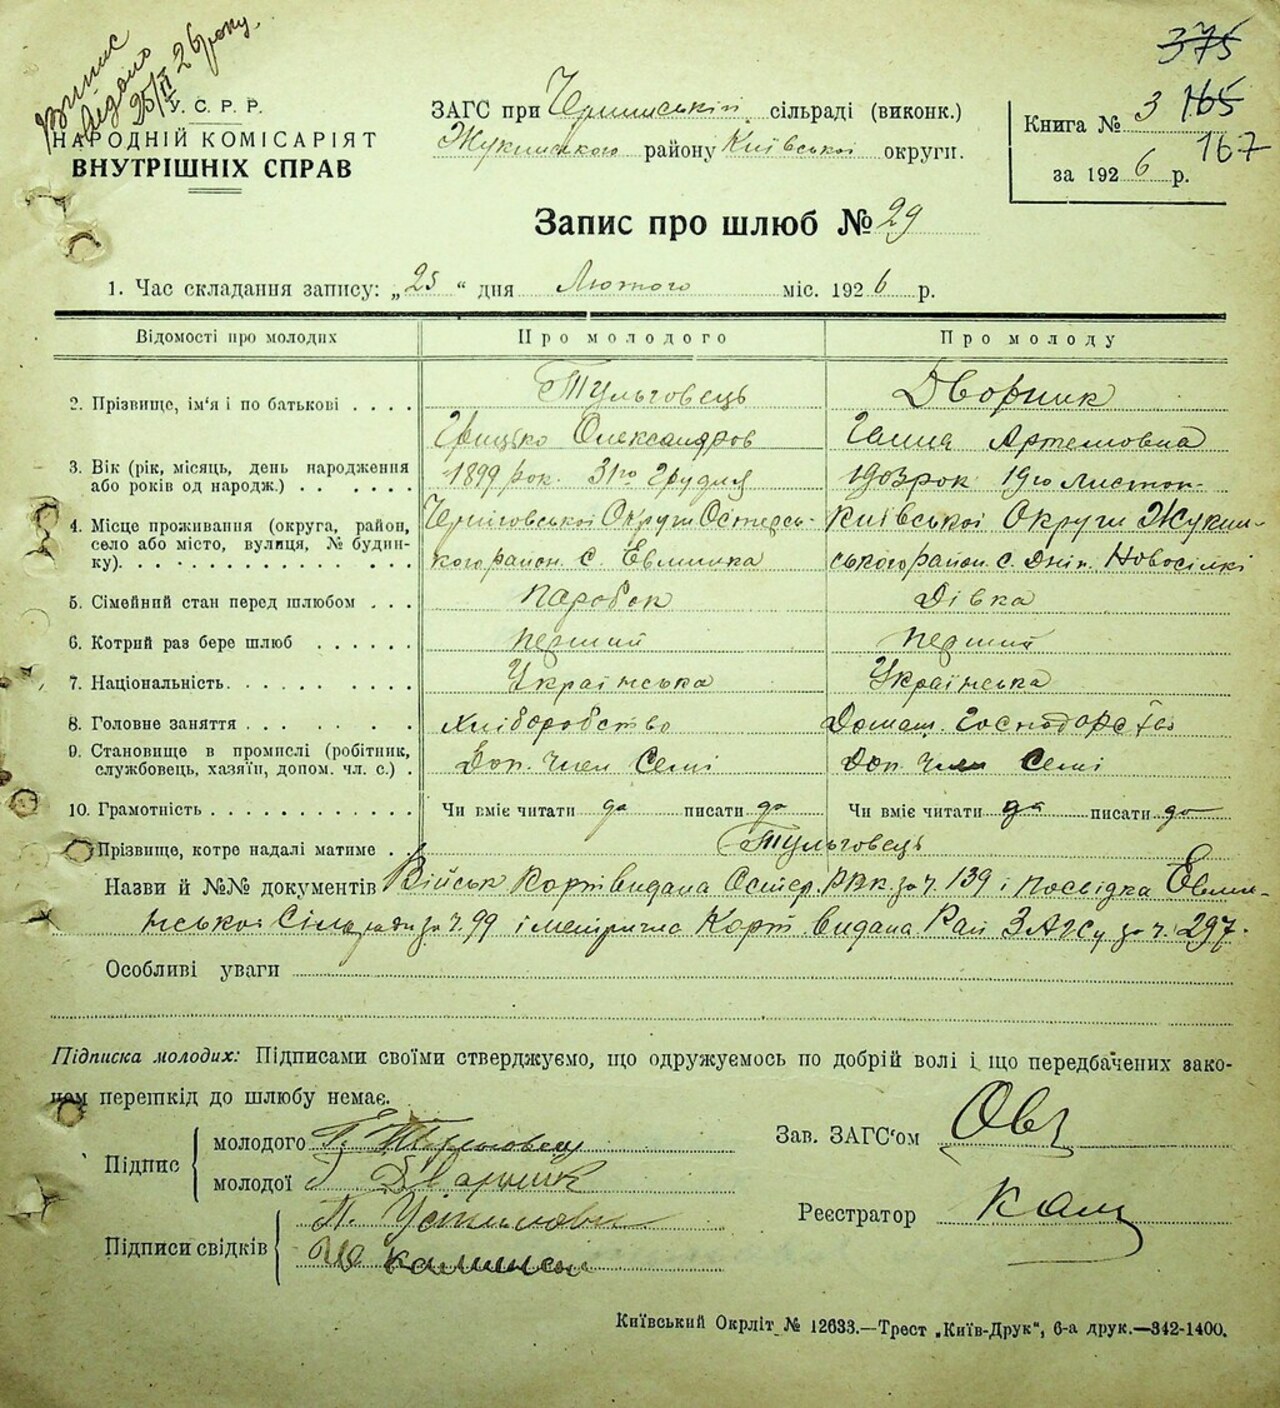 Випис
видано
25/II 26 року.
375
У. С. Р. Р.
НАРОДНІЙ КОМІСАРІЯТ
ВНУТРІШНІХ СПРАВ
ЗАГС при сільраді (виконк.)
Жукинського району Київської округи.
Книга № 3 165
167
за 1926 р.
Запис про шлюб № 29
1. Час складання запису: „25“ дня Лютого міс. 1926 р.
Відомості про молодих Про молодого Про молоду
2. Прізвище, ім'я і по батькові . . . . Тульговець Дворник
Грицько Олександров Ганна Артемовна
3. Вік (рік, місяць, день народження 1899 рок. 31го Грудня 1903 рок 19го листоп.
або років од народж.) . . . . . .
4. Місце проживання (округа, район, Черніговської Округи Остерсь- Київської Округи Жукин-
село або місто, вулиця, № будин- кого район. с. Евминка ського район. с. Дніп. Новосілкі
ку). . . . . . . . . . . . . . .
5. Сімейний стан перед шлюбом . . . Паробок Дівка
6. Котрий раз бере шлюб . . . . . . перший перший
7. Національність. . . . . . . . . . Українська Українська
8. Головне заняття . . . . . . . Хліборобство Домаш. Господарство
9. Становище в промислі (робітник, Доп. член Семі Доп. член Семі
службовець, хазяїн, допом. чл. с.) .
10. Грамотність . . . . . . . . . . . Чи вміє читати да писати да Чи вміє читати да писати да
Прізвище, котре надалі матиме . . Тульговець
Назви й №№ документів Військ Карт видана Остер. РВК. за ч. 139 і посвідка Евмин-
ської Сільради за ч. 99 і метрична Карт видана Рай ЗАГСу за ч. 297.
Особливі уваги
Підписка молодих: Підписами своїми стверджуємо, що одружуємось по добрій волі і що передбачених зако-
ном перешкід до шлюбу немає.
Підпис молодого Г. Тульговець
молодої Дварник
Зав. ЗАГС'ом
Підписи свідків
Реєстратор
Київський Окрліт № 12633.—Трест „Київ-Друк“, 6-а друк.—342-1400.